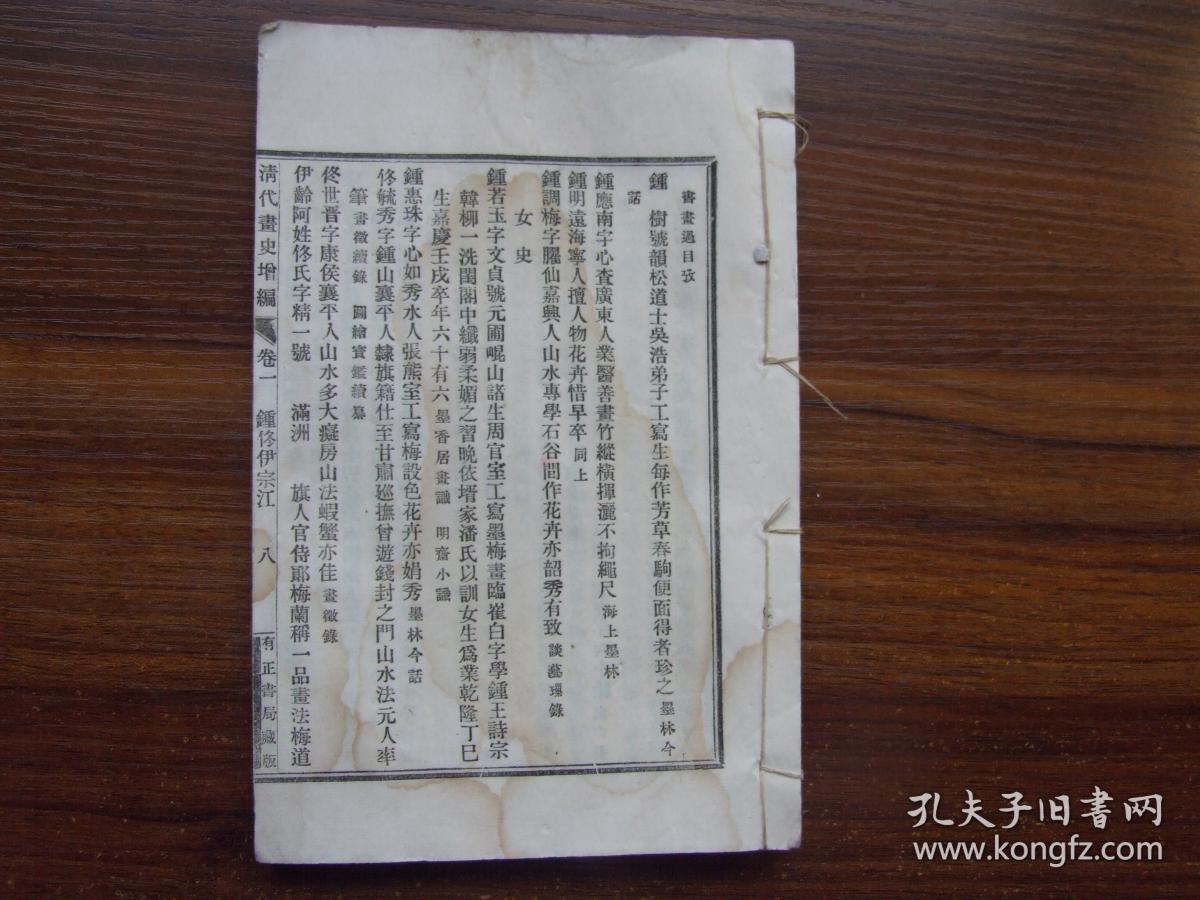 書畫過目攷
鍾　樹號韻松道士吳浩弟子工寫生每作芳草春駒便面得者珍之墨林今
話
鍾應南字心查廣東人業醫善畫竹縱橫揮灑不拘繩尺海上墨林
鍾明遠海寧人擅人物花卉惜早卒同上
鍾調梅字臞仙嘉興人山水專學石谷間作花卉亦韶秀有致談藝瑣錄
女史
鍾若玉字文貞號元圃崐山諸生周官室工寫墨梅畫臨崔白字學鍾王詩宗
韓柳一洗閨閣中纖弱柔媚之習晚依壻家潘氏以訓女生爲業乾隆丁巳
生嘉慶壬戌卒年六十有六墨香居畫識　明齋小識
鍾惠珠字心如秀水人張熊室工寫梅設色花卉亦娟秀墨林今話
佟毓秀字鍾山襄平人隸旗籍仕至甘肅廵撫曾遊錢封之門山水法元人率
筆畫徵續錄　圖繪寶鑑續纂
佟世晋字康侯襄平人山水多大癡房山法蝦蟹亦佳畫徵錄
伊齡阿姓佟氏字精一號　滿洲　旗人官侍郎梅蘭稱一品畫法梅道
清代畫史增編　卷一　鍾佟伊宗江　八　有正書局藏版
孔夫子旧书网
www.kongfz.com